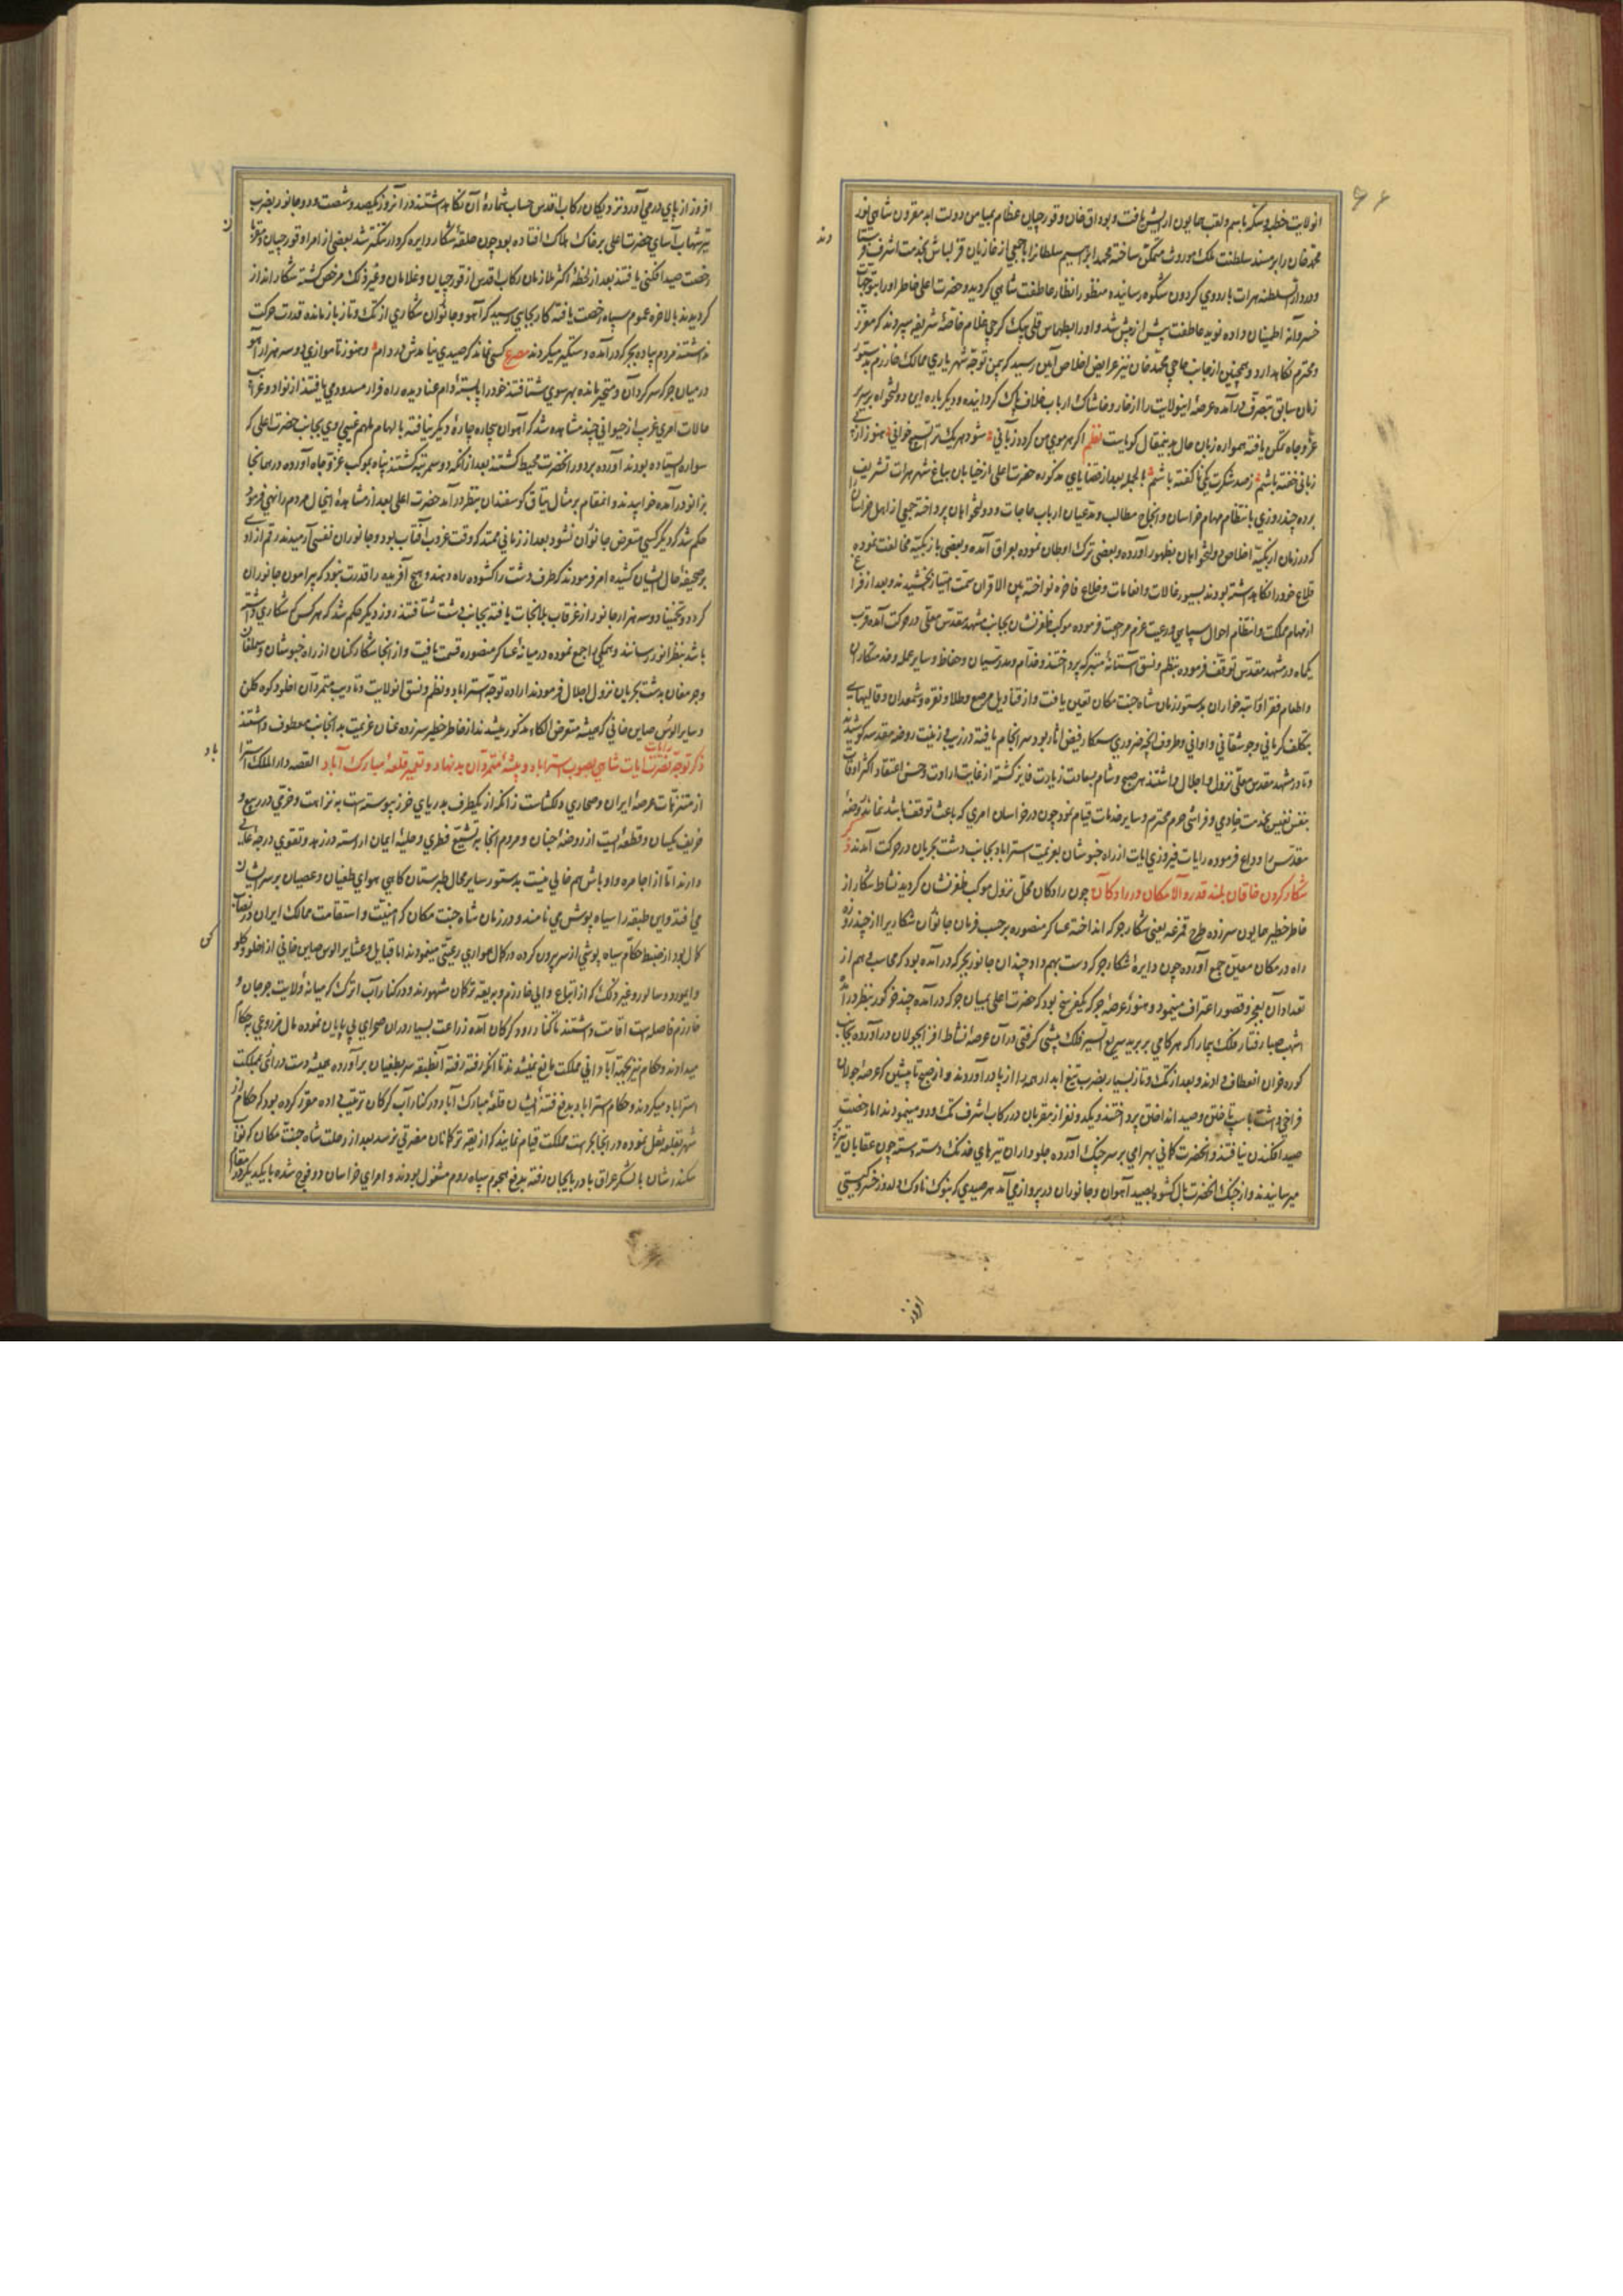 ۶۶
انولایت خطبه و سکه باسم و لقب همایون ارایش یافت و بوداق خان و قورچیان عظام بمیامن دولت ابد مقرون شاهی نور
محمد خان را بر مسند سلطنت ملک موروث متمکن ساخته محمد ابراهیم سلطانرا با جمعی از غازیان قزلباش بخدمت اشرف فرستا
دند
و در دار السلطنه هرات باردوی کردون شکوه رسانیده منظور انظار عاطفت شاهی کردید و حضرت اعلی خاطر اورا بتوجهات
خسروانه اطمینان داده نوید عاطفت پیش از پیش شد و اورا بطهماس قلی بیک کرجی غلام خاصه شریفه سپردند که معزز
و محترم نکاهدارد و همچنین از جانب حاجی محمد خان نیز عرایض اخلاص آیین رسید که بیمن توجه شهریاری ممالک خوارزم بدستور
زمان سابق بتصرف درآمده عرصهٔ انیولایت را از خار و خاشاک ارباب خلاف پاک کردانیده و دیکر باره این دولتخواه بر سریر
عز و جاه تمکن یافته همواره زبان حال بدینمقال کویاست نظم اکر هر موی من کردد زبانی شود هر یک ترا تسبیح خوانی هنوز از بی
زبانی خفته باشم ز صد شکرت یکی ناکفته باشم بالجمله بعد از قضایای مذکوره حضرت اعلی از خیابان بباغ شهر هرات تشریف
برده چند روزی بانتظام مهام خراسان و انجاح مطالب و مدعیان ارباب حاجات و دولتخواهان پرداخته جمعی از اهل خراسان
که در زمان اوزبکیه اخلاص و دولتخواهان بظهور آورده و بعضی ترک اوطان نموده بعراق آمده و بعضی با اوزبکیه مخالفت نموده
قلاع خود را نکاهداشته بودند بسیورغالات و انعامات و خلاع فاخره نواخته بین الاقران سمت امتیاز بخشیدند و بعد از فراغ
از مهام مملکت و انتظام احوال سپاهی و رعیت عزم مراجعت فرموده موکب ظفرنشان بجانب مشهد مقدس معلی در حرکت آمده قرب
یکماه در مشهد مقدس توقف فرموده بنظم و نسق آستانهٔ متبرکه پرداختند و خدام و مدرسیان و حفاظ و سایر عمله و خدمتکاران
و اطعام فقرا و راتبه خواران بدستور زمان شاه جنت مکان تعیین یافت و از قنادیل مرصع و طلا و نقره و شمعدان و قالیهای
بتکلف کرمانی و جوشقانی و اوانی و ظروف آنچه ضروری سرکار فیض اثار بود سرانجام یافته در زیب و زینت روضه مقدسه کوشیدند
و تا در مشهد مقدس معلی نزول اجلال داشتند هر صبح و شام بسعادت زیارت فایز کشته از غایت ارادت و حسن اعتقاد اکثر اوقات
بنفس نفیس بخدمت خادمی و فراشی حرم محترم و سایر خدمات قیام نمود چون در خراسان امری که باعث توقف باشد نماند روضهٔ
مقدس را وداع فرموده رایات فیروزی ایات از راه خبوشان بعزیمت استراباد بجانب دشت بحریان در حرکت آمدند ذکر
شکار کردن خاقان بلند قدر والا مکان در رادکان چون رادکان محل نزول موکب ظفرنشان کردید نشاط شکار از
خاطر خطیر همایون سر زده طرح قمرغه یعنی شکار جرکه انداخته عساکر منصوره بر حسب فرمان جانوران شکاری را از چند روزه
راه در مکان معین جمع آورده چون دایرهٔ شکار جرکه دست بهم داد چندان جانور بجرکه درآمده بود که محاسب وهم از
تعداد آن بعجز و قصور اعتراف مینمود و هنوز عرصه جرکه یکفرسخ بود که حضرت اعلی بمیان جرکه درآمده چند خر کور بنظر درآمد
اشهب صبا رفتار فلک پیما را که هر کامی بر برید سریع السیر فلک پیشی کرفتی در آن عرصه نشاط افزا بجولان درآورده بجانب
کوره خران انعطاف دادند و بعد از تک و تاز بسیار بضرب تیغ ابدار همه را از پا درآوردند و از صبح تا پیشین که عرصهٔ جولان
فراخی داشت باسپ تاختن و صید انداختن پرداختند و یکد و نفر از مقربان در رکاب اشرف تک و دو مینمودند اما رخصت
صید افکندن نیافتند و انحضرت کمانی بهرامی بر سر چنک آورده جلوداران تیرهای خدنک دسته دسته چون عقابان تیزپر
میرسانیدند و از چنک انحضرت بال کشوده بصید آهوان و جانوران در پرواز می آمد هر صیدی که بنوک ناوک دلدوز خسرو کیتی
افروز
افروز از پای در می آورد نزدیکان رکاب اقدس حساب شمارهٔ آن نکاه داشتند در آنروز یکصد و شصت و دو جانور بضرب
تیر شهاب آسای حضرت اعلی بر خاک هلاک افتاده بود چون حلقهٔ شکار و دایره کرد ار تنکتر شد بعضی از امرا و قورچیان و مقربان
رخصت صید افکنی یافتند بعد از لحظهٔ اکثر ملازمان رکاب اقدس از قورچیان و غلامان و غیر ذلک مرخص کشته شکار انداز
کردیدند بالاخره عموم سپاه رخصت یافته کار بجایی رسید که آهو و جانوران شکاری از تک و تاز باز مانده قدرت حرکت
نداشتند مردم پیاده بجرکه درآمده دستکیر میکردند مصرع کسی نماند که صیدی نیامدش در دام و هنوز تا موازی دو سه هزار آهو
در میان جرکه سرکردان و متحیر مانده بهر سوی شتافتند خود را پابستهٔ دام عنا دیده راه فرار مسدود می یافتند از نوادر و غرایب
حالات امری غریب از حیوانی چند مشاهده شد که آهوان بیچاره چارهٔ دیکر نیافته بالهام ملهم غیبی روی بجانب حضرت اعلی که
سواره ایستاده بودند آورده بر دور انحضرت محیط کشتند بعد از انکه دو سه مرتبه کشتند پناه بموکب عز و جاه آورده در همانجا
بزانو درآمده خوابیدند و اغنام بر مثال یتاق کوسفندان بنظر درآمد حضرت اعلی بعد از مشاهدهٔ اینحال مردم را نهی فرموده
حکم شد که دیکر کسی متعرض جانوران نشود بعد از زمانی ممتد که وقت غروب آفتاب بود و جانوران نفسی آرمیدند رقم ازادی
بر صحیفهٔ حال ایشان کشیده امر فرمودند که طرف دشت را کشوده راه دهند و هیچ آفریده را قدرت نبود که پیرامون جانوران
کردد و تخمینا دو سه هزار جانور از غرقاب بلا نجات یافته بجانب دشت شتافتند روز دیکر حکم شد که هر کس که شکاری داشته
باشد بنظر انور رسانند و همکی را جمع نموده در میانهٔ عساکر منصوره قسمت یافت و از انجا شکار کنان از راه خبوشان و سملقان
و جرمغان بدشت بحریان نزول اجلال فرمودند ارادهٔ توجه استراباد و نظم و نسق انولایت و تادیب متمردان اخلو و کوه کلن
و سایر الوس صاین خانی که همیشه متعرض الکاء مذکور میشدند از خاطر خطیر سر زده عنان عزیمت بدانجانب معطوف داشتند
ذکر توجه نصرت آیات رایات شاهی بصوب استراباد و بیشهٔ متمردان بدنهاد و تعمیر قلعهٔ مبارک آباد القصه دار الملک استرا
باد
از متنزهات عرصهٔ ایران و صحاری دلکشاست زانکه از یکطرف بدریای خزر پیوسته است به نزاهت و خرمی در ربیع و
خریف یکسان و قطعه ایست از روضهٔ جنان و مردم انجا بتشیع فطری و حلیهٔ ایمان اراسته در زهد و تقوی درجهٔ عالی
دارند اما از اجامره و اوباش هم خالی نیست بدستور سایر محال طبرستان کاهی هوای طغیان و عصیان بر سر ایشان
می افتد و این طبقه را سیاه پوش می نامند و در زمان شاه جنت مکان که امنیت و استقامت ممالک ایران در نصاب
کمال بود از ضبط حکام سیاه پوشی از سر بیرون کرده در کمال همواری رعیتی مینمودند اما قبایل و عشایر الوس صاین خانی از اخلو و کلو
و ایمور و سالور و غیر ذلک که از اتباع والی خوارزم و به یقه ترکمان مشهورند و در کنار آب اترک که میانهٔ ولایت جرجان و
خوارزم فاصله است اقامت داشتند تا کنار رود کرکان آمده زراعت بسیار در ان صحرای بی پایان نموده مال مزروعی بحکام
میدادند و حکام نیز بجهة آبادانی مملکت مانع نمیشدند تا انکه رفته رفته آنطبقه سر بطغیان برآورده همیشه دست درازی بمملکت
استراباد میکردند و حکام استراباد بدفع فتنهٔ ایشان قلعهٔ مبارک آباد در کنار آب کرکان ترتیب داده مقرر کرده بود که حکام از
شهر بقلعه نقل نموده در انجا بحراست مملکت قیام نمایند که از یقه ترکمانان مضرتی نرسد بعد از رحلت شاه جنت مکان که نواب
سکندر شان با لشکر عراق باذربایجان رفته بدفع هجوم سپاه روم مشغول بودند و امرای خراسان دو فوج شده با یکدیکر در مقام